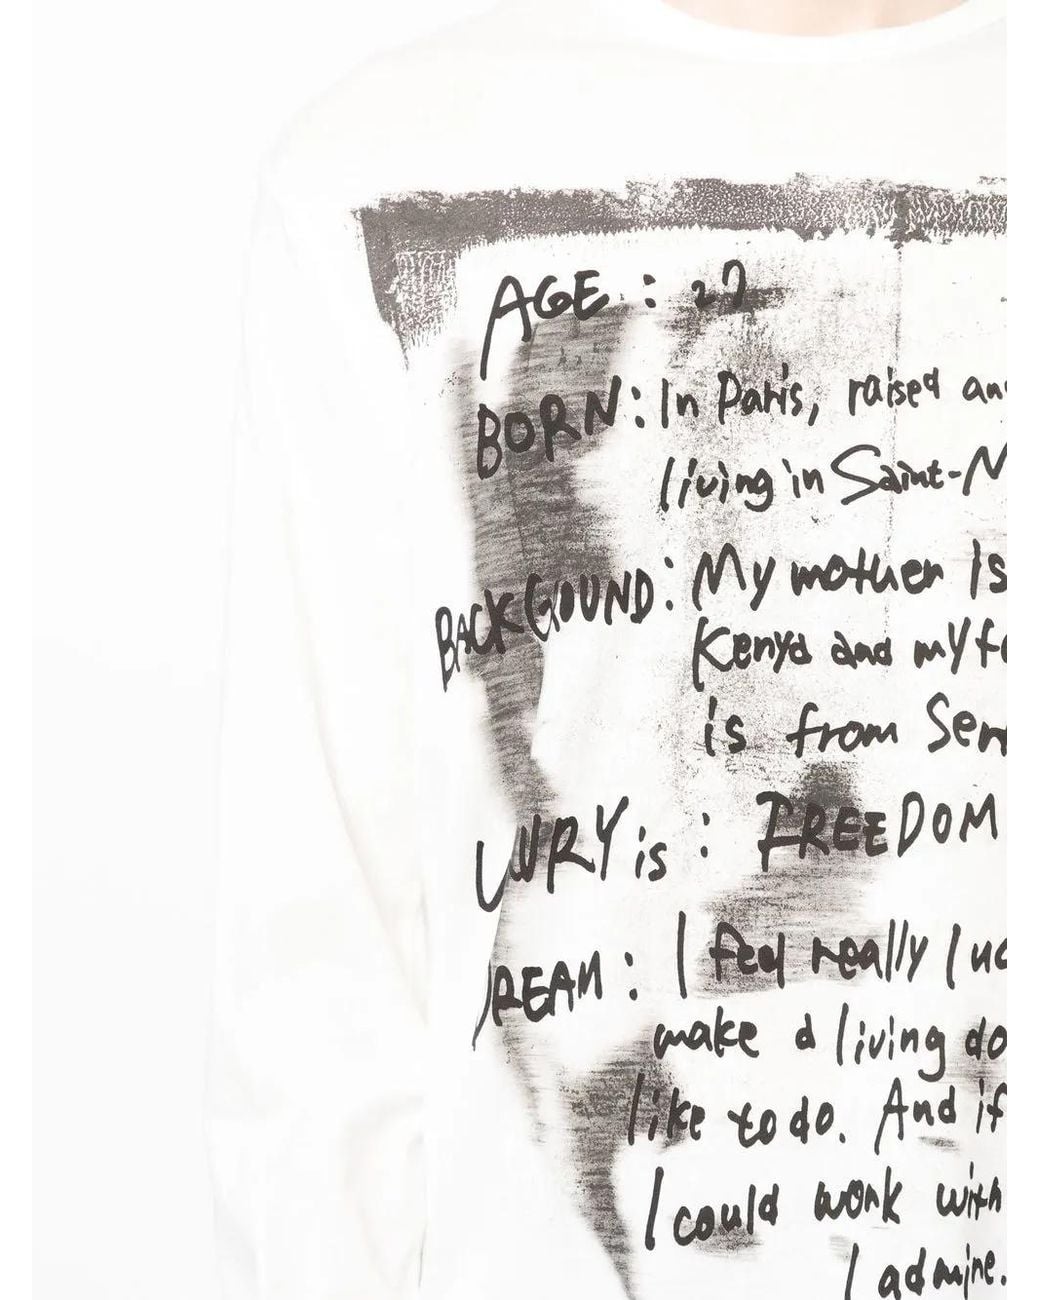 AGE : 27
BORN: In Paris, raised an
living in Saint-N
BACKGOUND: My mother Is
Kenya and my fa
is from Sen
UXURY is : FREEDOM
REAM : I feel really luc
make a living do
like to do. And if
I could work with
I admire.